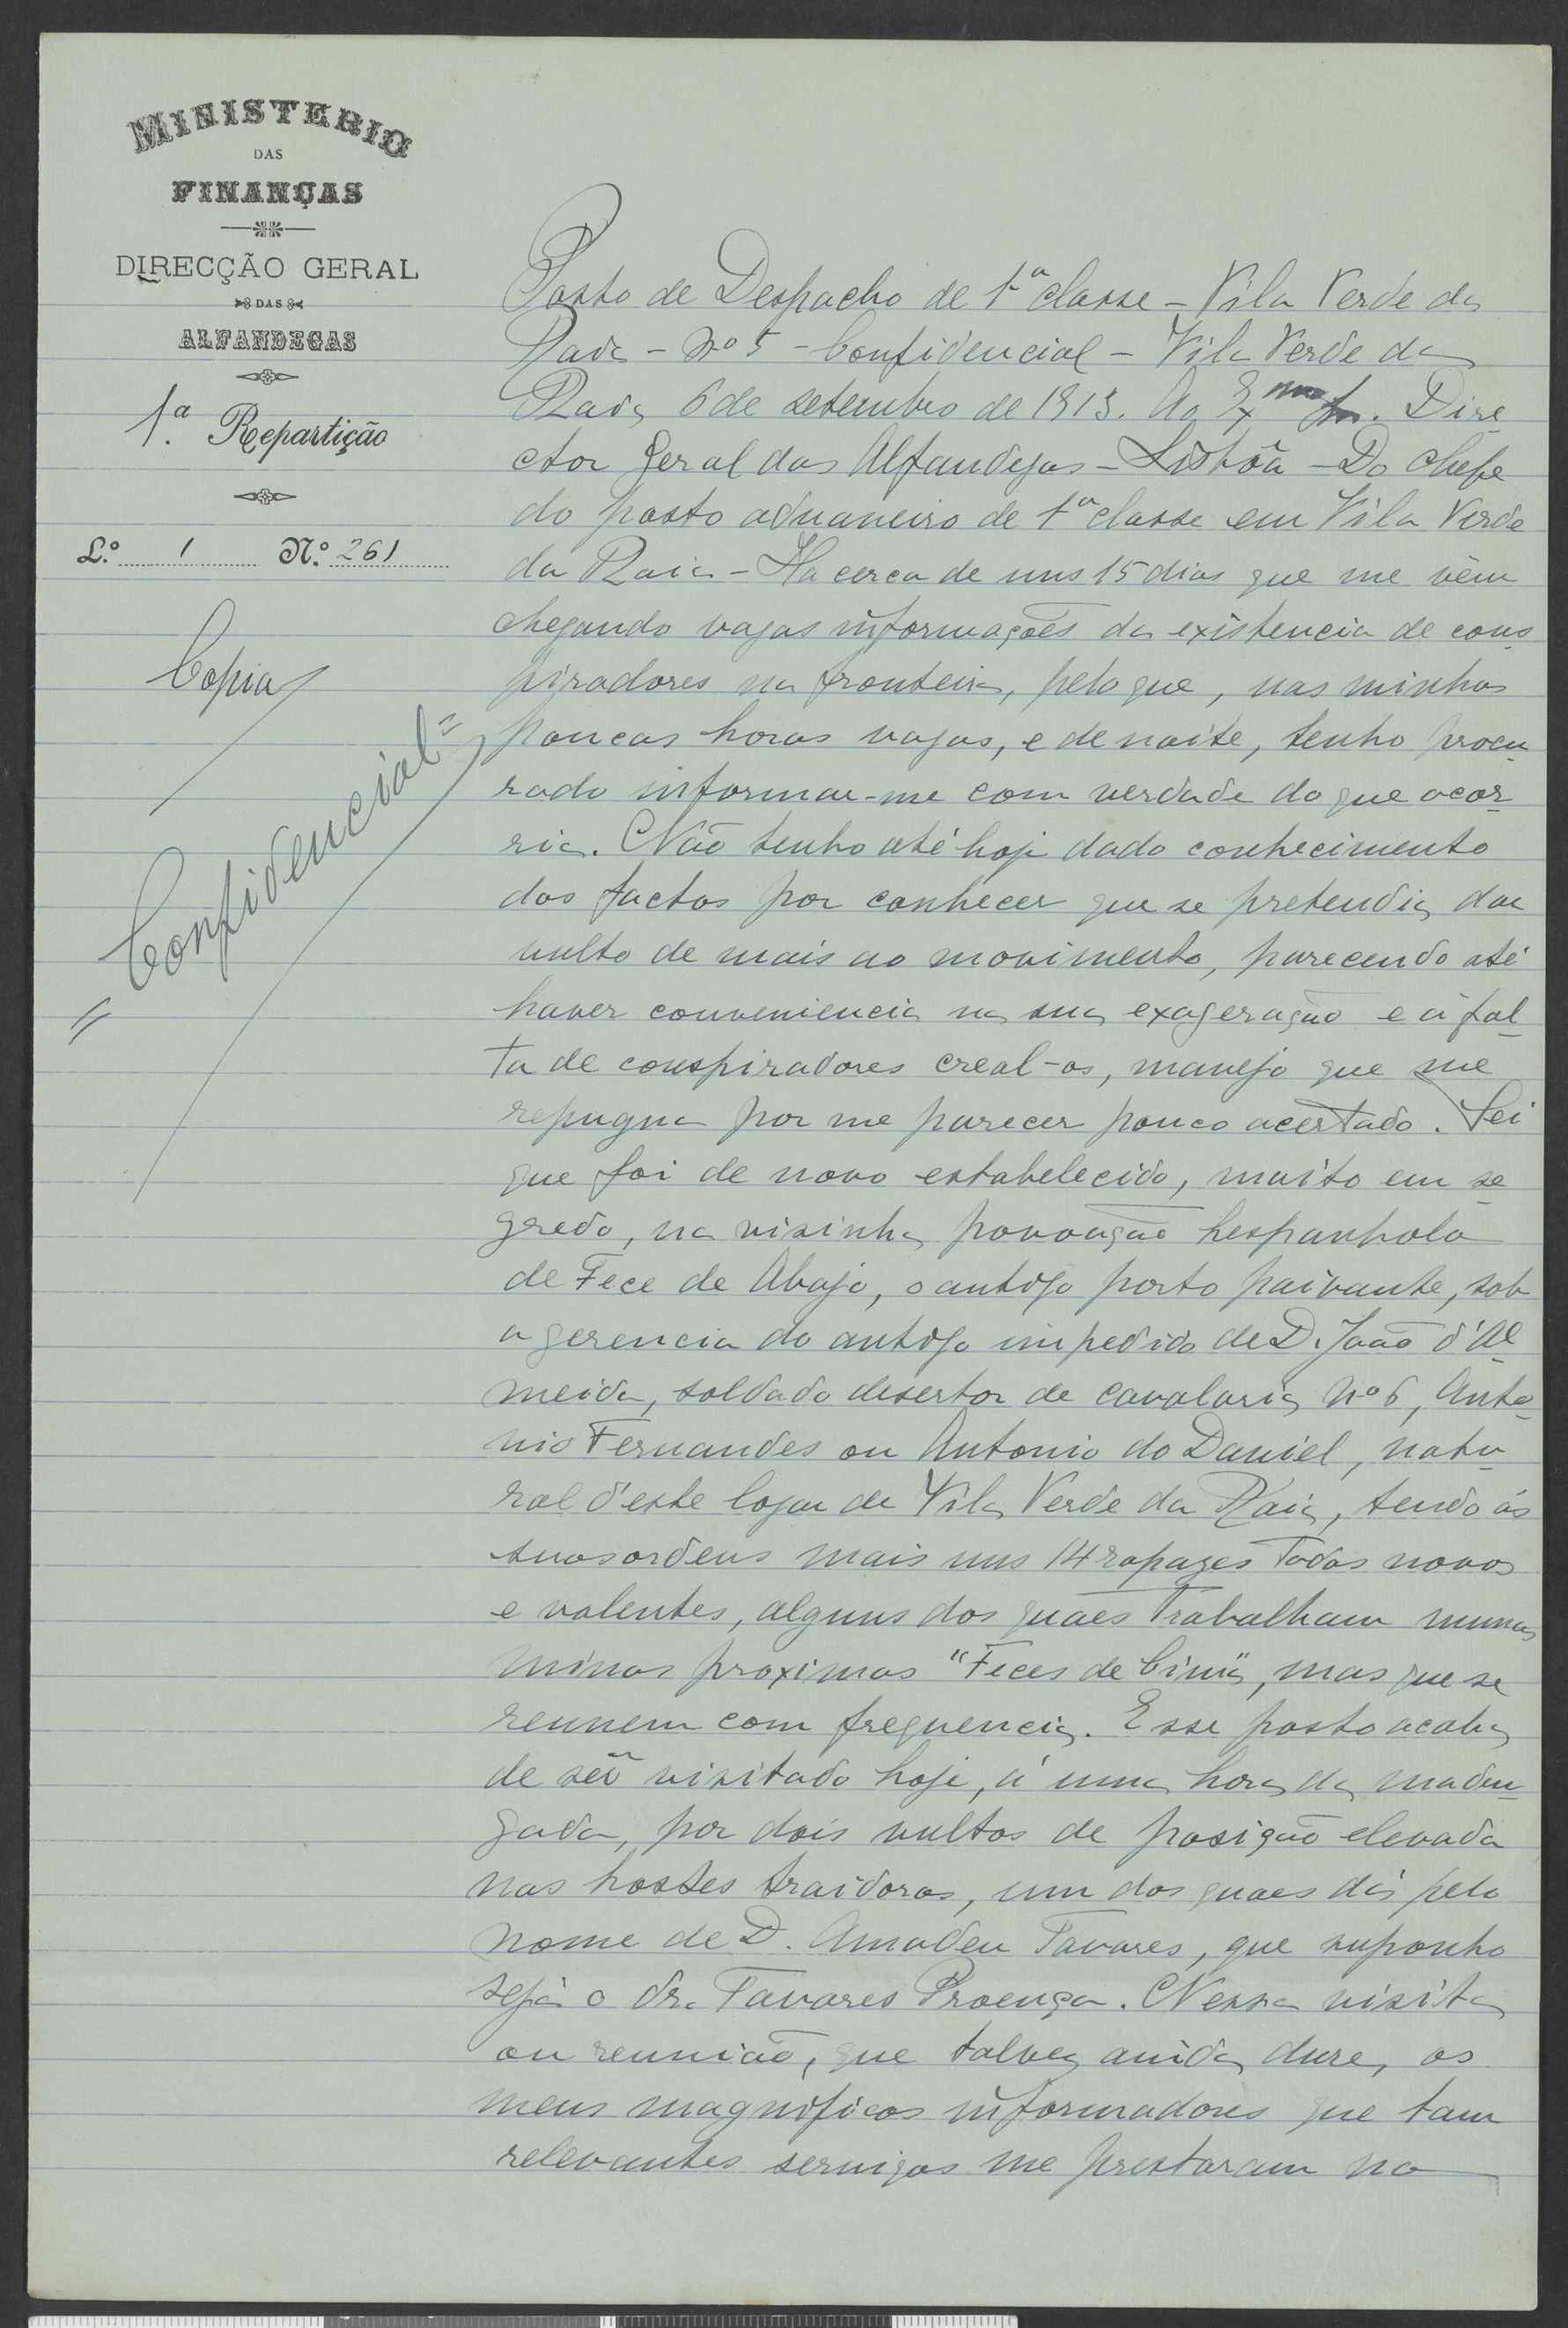 MINISTERIO
DAS
FINANÇAS
DIRECÇÃO GERAL
DAS
ALFANDEGAS
1.ª Repartição
L.º 1 N.º 261
Copia
"Confidencial"
Posto de Despacho de 1ª classe - Vila Verde da
Raia - Nº 5 - Confidencial - Vila Verde da
Raia, 6 de setembro de 1913. Ao Exmo Sr. Dire
ctor Geral das Alfandegas - Lisbôa - Do chefe
do posto aduaneiro de 1ª classe em Vila Verde
da Raia - Ha cerca de uns 15 dias que me vêm
chegando vagas informações da existencia de cons
piradores na fronteira, pelo que, nas minhas
poucas horas vagas, e de noite, tenho procu
rado informar-me com verdade do que ocor
ria. Não tenho até hoje dado conhecimento
dos factos por conhecer que se pretendia dar
vulto de mais ao movimento, parecendo até
haver conveniencia na sua exageração e á fal
ta de conspiradores creal-os, manejo que me
repugna por me parecer pouco acertado. Sei
que foi de novo estabelecido, muito em se
gredo, na visinha povoação hespanhola
de Fece de Abajo, o antigo posto paivante, sob
a gerencia do antigo impedido de D. João d'Al
meida, soldado desertor de cavalaria nº 6, Anto
nio Fernandes ou Antonio do Daniel, natu
ral d'este logar de Vila Verde da Raia, tendo ás
suas ordens mais uns 14 rapazes todos novos
e valentes, alguns dos quaes trabalham numas
minas proximas "Feces de Cima", mas que se
reunem com frequencia. Esse posto acaba
de ser visitado hoje, á uma hora da madru
gada, por dois vultos de posição elevada
nas hostes traidoras, um dos quaes dá pelo
nome de D. Amadeu Tavares, que suponho
seja o dr. Tavares Proença. Nessa visita
ou reunião, que talvez ainda dure, os
meus magnificos informadores que tam
relevantes serviços me prestaram na